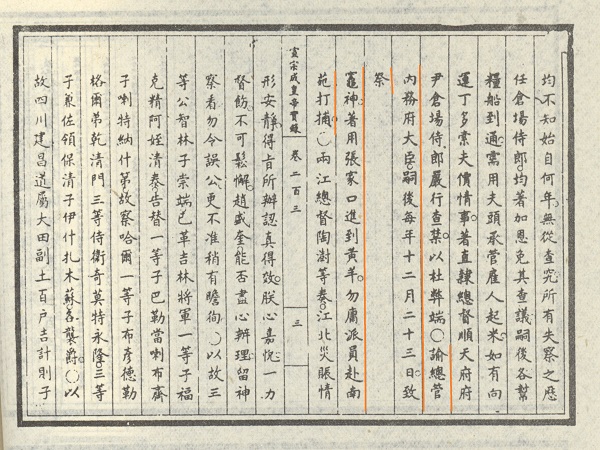 均不知始自何年。無從查究所有失察之歷
任倉場侍郎。均著加恩免其查議。嗣後各幫
糧船到通。需用夫頭承管雇人起米。如有向
運丁多索夫價情事。著直隸總督順天府府
尹倉場侍郎嚴行查禁。以杜弊端○諭總管
內務府大臣。嗣後每年十二月二十三日致
祭
竈神。著用張家口進到黃羊。勿庸派員赴南
苑打捕○兩江總督陶澍等奏。江北災賑情
形安靜。得旨。所辦認真得效。朕心嘉悅。一力
宣宗成皇帝實錄 卷二百三 三
督飭。不可鬆懈。趙盛奎能否盡心辦理。留神
察看。勿令誤公。更不准稍有瞻徇○以故三
等公智林子崇端。已革吉林將軍一等子福
克精阿姪清泰。告替一等子巴勒當喇布齋
子喇特納什第。故察哈爾一等子布彥德勒
格爾弟乾清門三等侍衛奇莫特永隆。三等
子兼佐領保清子伊什扎木蘇。各襲爵○以
故四川建昌道屬大田副土百戶吉計則子